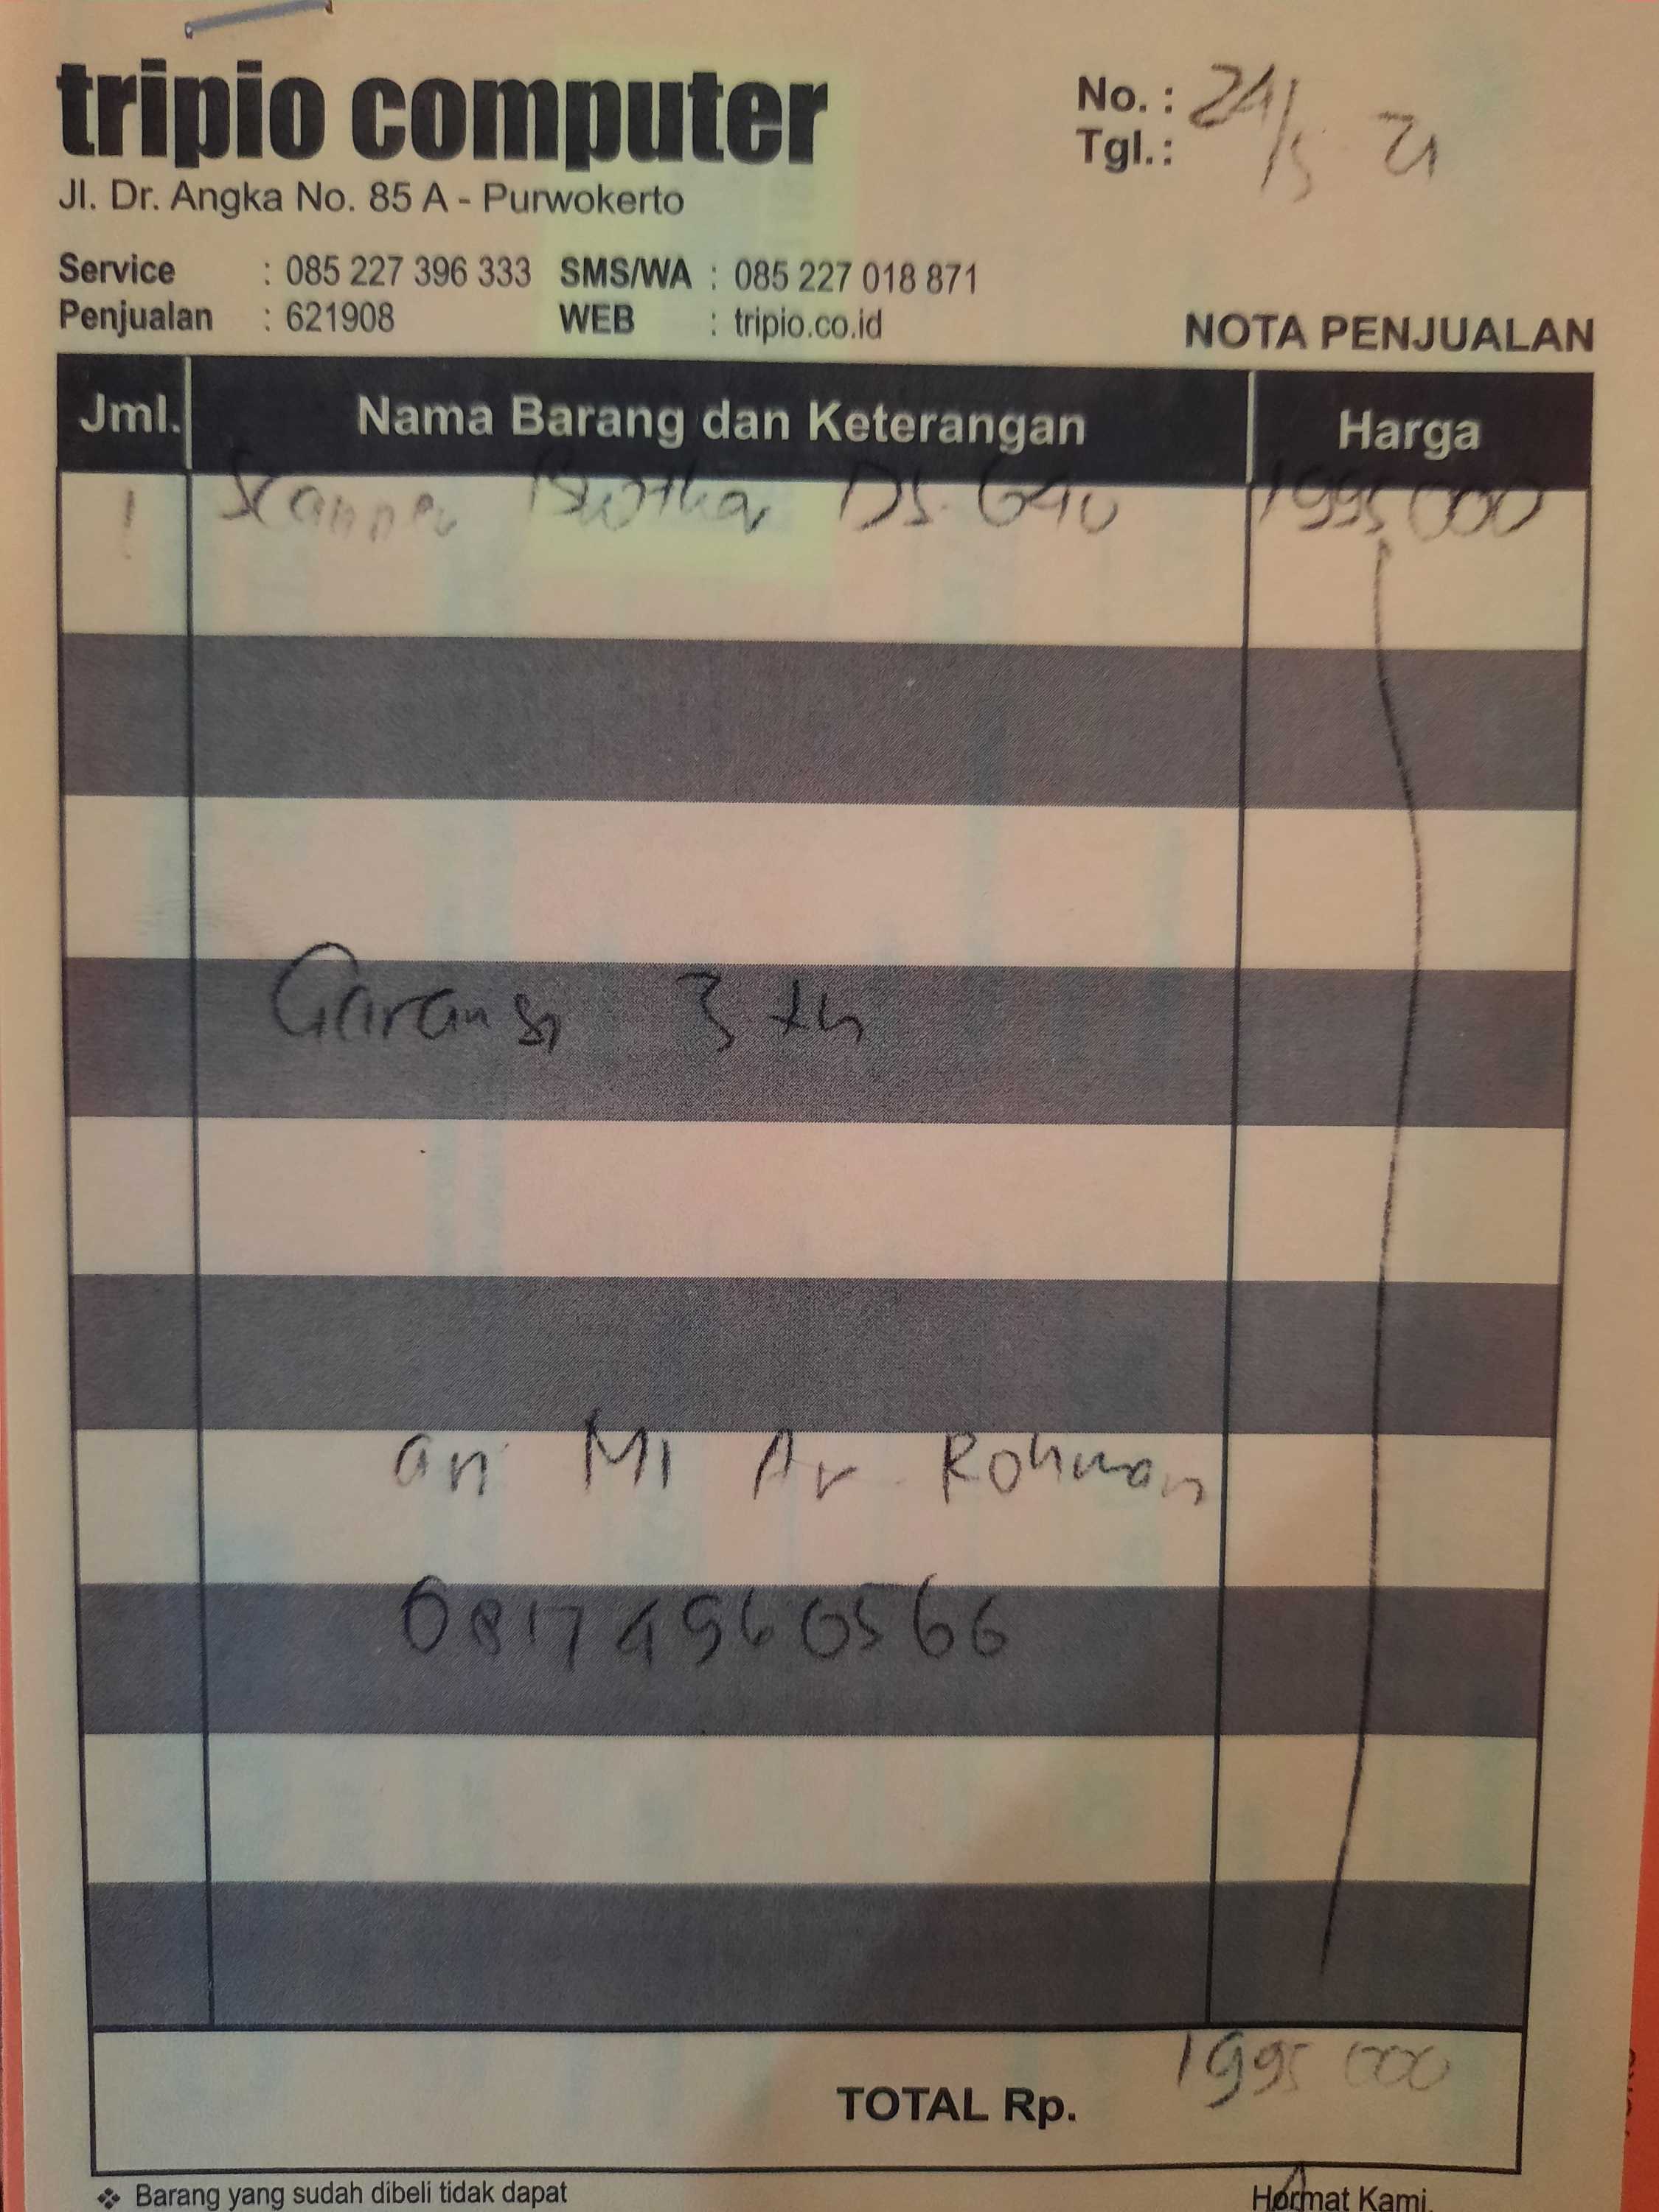 tripio computer
Jl. Dr. Angka No. 85 A - Purwokerto
No. :
Tgl. : 24/5 21
Service : 085 227 396 333 SMS/WA : 085 227 018 871
Penjualan : 621908 WEB : tripio.co.id
NOTA PENJUALAN
Jml. Nama Barang dan Keterangan Harga
1 Scanner Brother DS. 640 1995000
Garansi 3 th
an MI Ar Rohman
081749560566
TOTAL Rp. 1995 000
❖ Barang yang sudah dibeli tidak dapat
Hormat Kami,